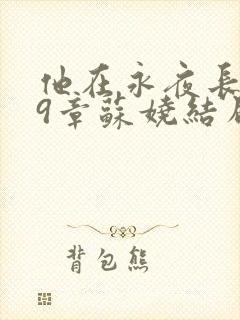 他在永夜長
9章蘇嬈結局
背包熊